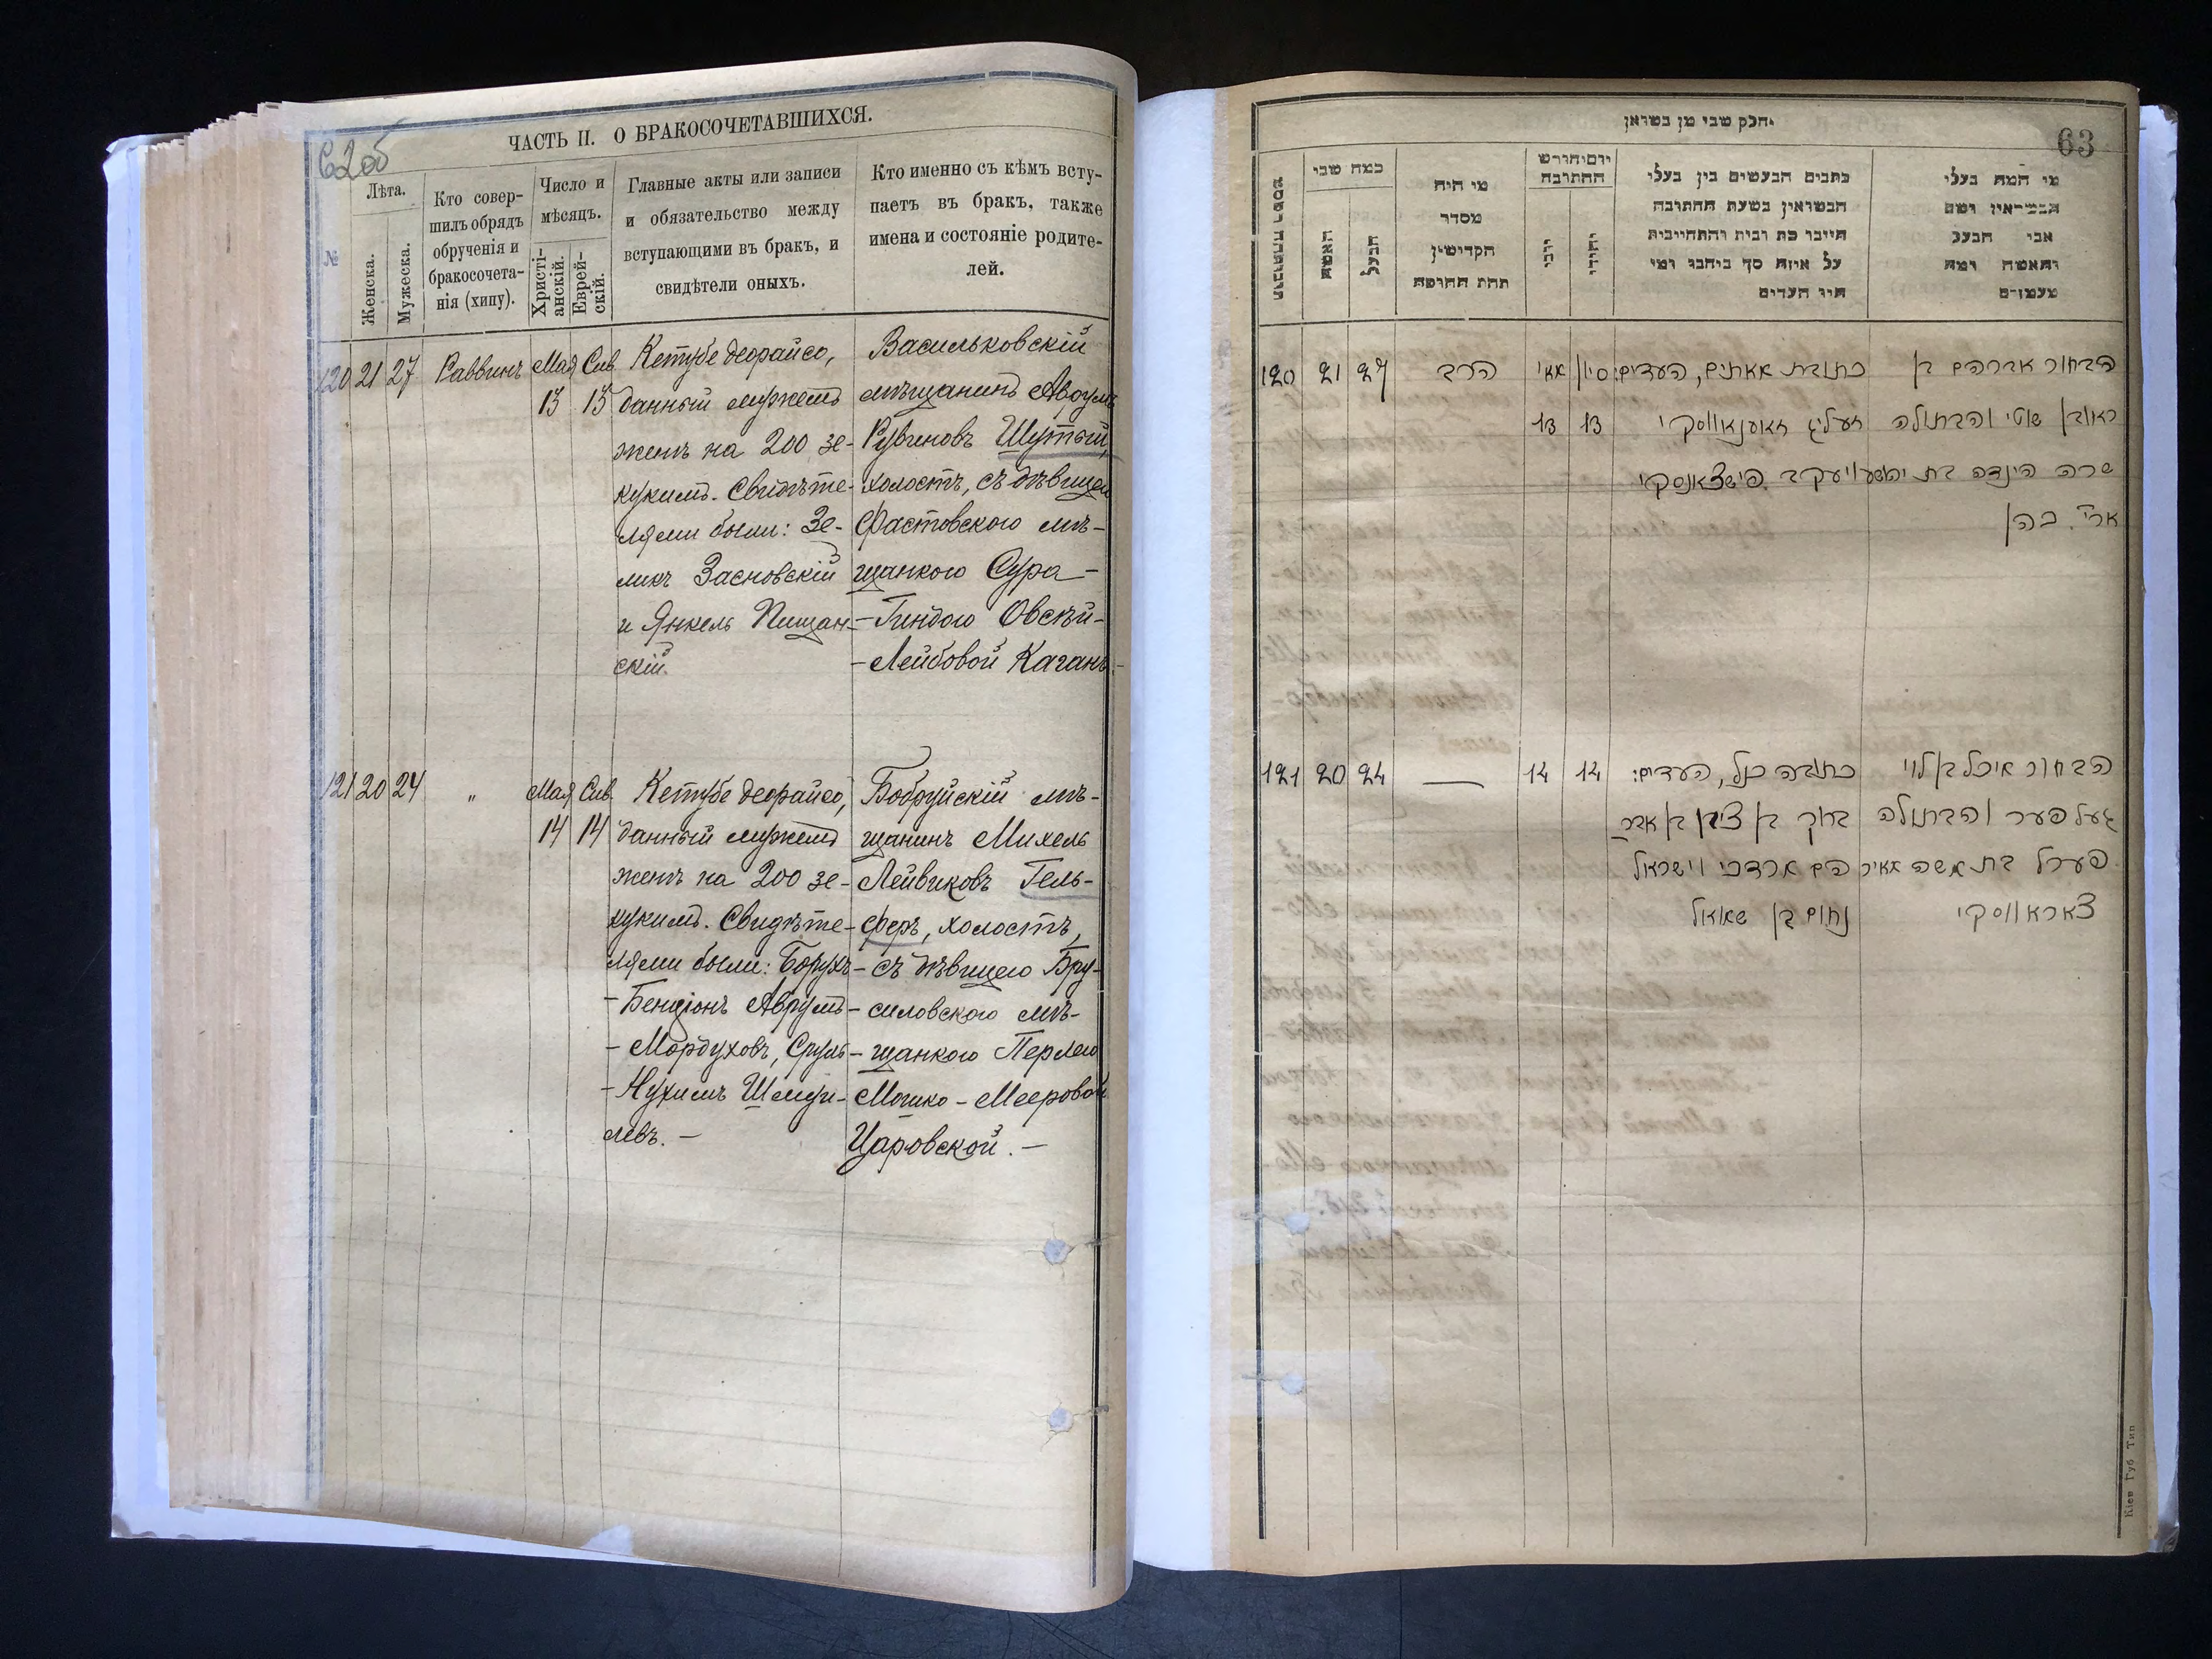 62об
ЧАСТЬ II. О БРАКОСОЧЕТАВШИХСЯ.
№
Лѣта.
Женска.
Мужеска.
Кто совер-
шилъ обрядъ
обрученія и
бракосочета-
нія (хипу).
Число и
мѣсяцъ.
Христі-
анскій.
Еврей-
скій.
Главные акты или записи
и обязательство между
вступающими въ бракъ, и
свидѣтели оныхъ.
Кто именно съ кѣмъ всту-
паетъ въ бракъ, также
имена и состояніе родите-
лей.
120 21 27 Раввинъ Мая Сив
13 13
Кетубе деорайсо,
данный мужемъ
женѣ на 200 зе-
кукимъ. Свидѣте-
лями были: Зе-
ликъ Засновскій
и Янкель Пищан-
скій.
Васильковскій
мѣщанинъ Аврумъ
Рувиновъ Шутый,
холостъ, съ дѣвицею
Фастовскою мѣ-
щанкою Сура-
-Гиндою Овсѣй-
-Лейбовой Каганъ.
121 20 24 " Мая Сив
14 14
Кетубе деорайсо,
данный мужемъ
женѣ на 200 зе-
кукимъ. Свидѣте-
лями были: Борухъ-
-Бенціонъ Аврумъ-
-Мордуховъ, Сруль-
-Нухимъ Шмуй-
левъ. —
Бобруйскій мѣ-
щанинъ Михель
Лейвиковъ Гель-
феръ, холостъ,
съ дѣвицею Бру-
силовскою мѣ-
щанкою Перлею
Мошко-Мееровой
Царовской. —
63
חלק שני מן נשואין
כמה שני
האשה
הבעל
מי היה
מסדר
הקדושין
תחת החופה
יום וחודש
החתונה
יוני
יהודי
כתבים הנעשים בין בעלי
הנשואין בשעת החתונה
על איזה סך ביחבו ומי
היו העדים
מי המה בעלי
הנשואין ושם
אבי הבעל
והאשה ומה
מעמדם
120 21 27 הרב מאי סיון
13 13
כתובת מאתים, העדים:
זעליג
הבחור אברהם בן
ראובן שוטי והבתולה
שרה הינדה בת
כהן
121 20 24 — 14 14
כתובה כנל, העדים:
ברוך בן ציון בן אבר
הם מרדכי וישראל
נחום בן שמואל
הבחור מיכל בן לוי
געלפער והבתולה
פערל בת משה מאיר
צאראווסקי
Кіев Губ Тип